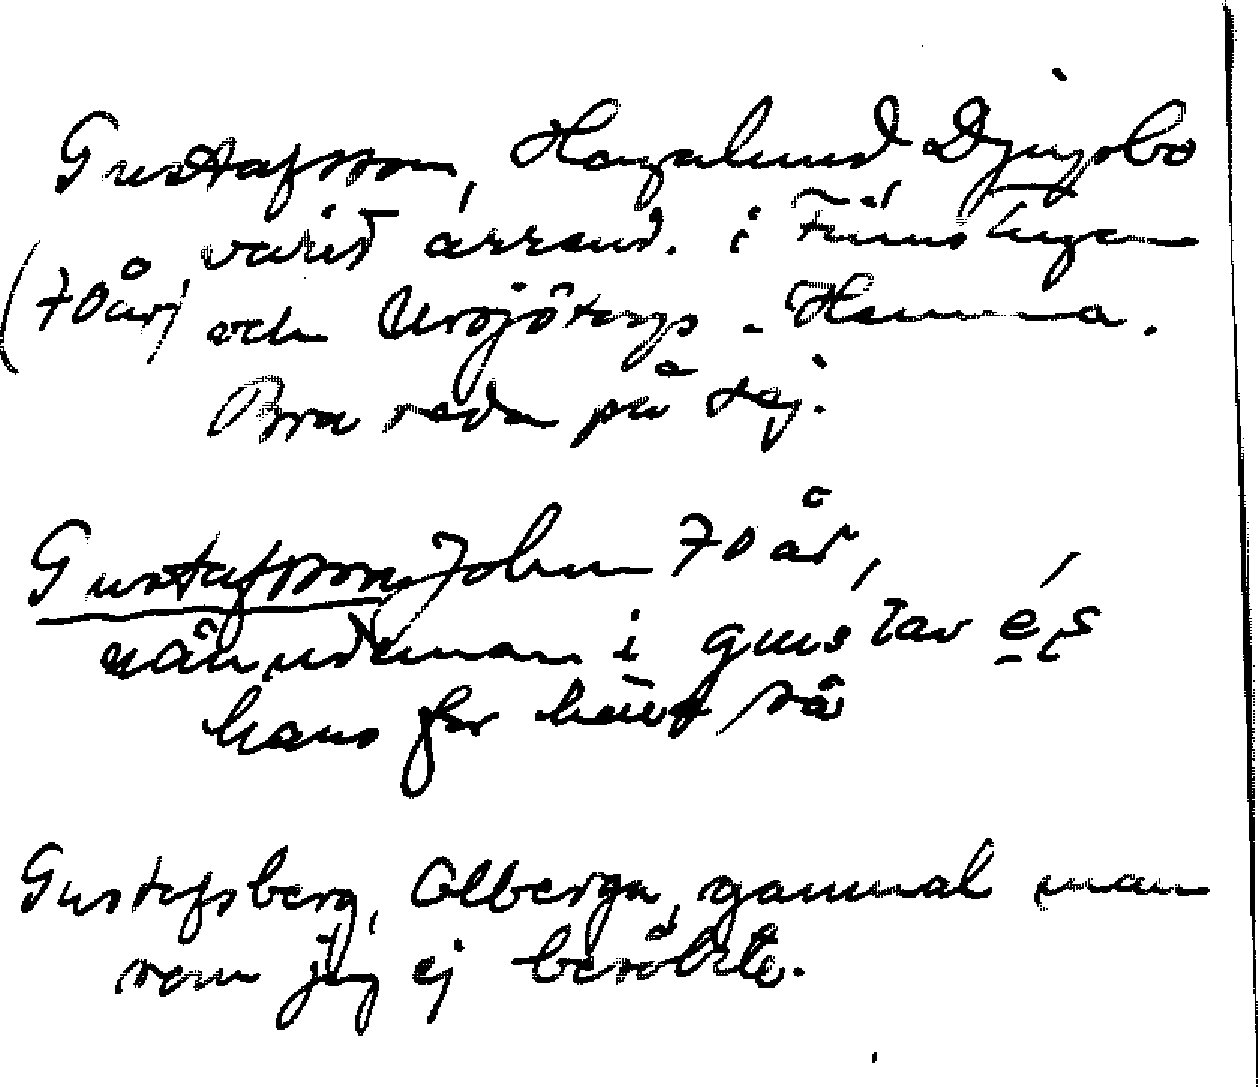 Gustafsson, Hagalund Djupsbo
varit arrend. i
(70 år) och Ursjötorp - Hemma.
Bra reda på sej.
Gustafsson, John 70 år,
nämndeman i gustav
hans far
Gustafsberg, Alberga, gammal man
som jag ej besökte.